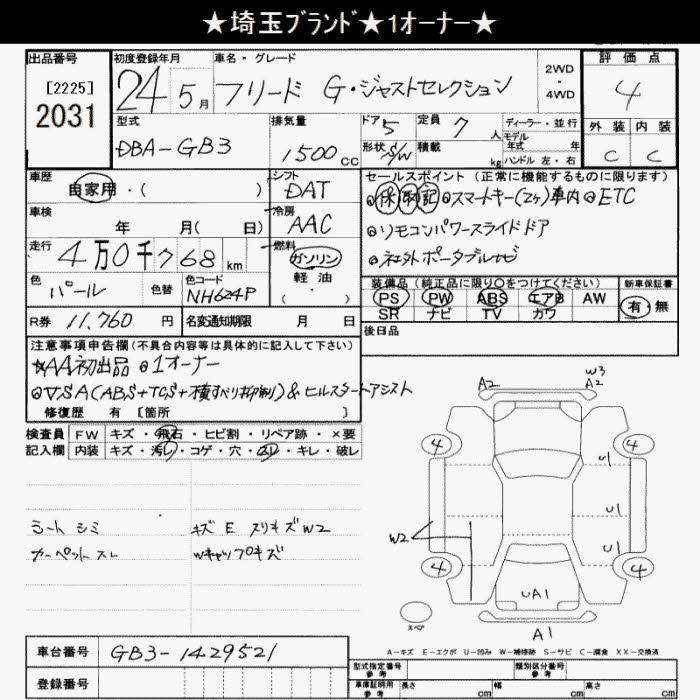 ★埼玉ブランド★1オーナー★
出品番号
[2225]
2031
初度登録年月
24 5月
車名・グレード
フリード G・ジャストセレクション
2WD
・
4WD
評価点
4
型式
DBA-GB3
排気量
1500cc
ドア 5
形状 S/W
定員 7人
積載 kg
ディーラー・並行
モデル年式 年
ハンドル 左・右
外装 内装
C C
車歴
自家用・( )
シフト
DAT
車検
年 月( 日)
冷房
AAC
走行
4万0千768km
燃料
ガソリン
軽油
( ・ )
色
パール
色替
色コード
NH624P
R券 11,760円
名変通知期限 月 日
セールスポイント(正常に機能するものに限ります)
◎保取記◎スマートキー(2ケ)車内◎ETC
◎リモコンパワースライドドア
◎社外ポータブルナビ
装備品(純正品に限り○をつけてください)
PS PW ABS エアB AW
SR ナビ TV カワ
新車保証書
有・無
後日品
注意事項申告欄(不具合内容等は具体的に記入して下さい)
★AA初出品 ◎1オーナー
◎VSA(ABS+TCS+横すべり抑制)&ヒルスタートアシスト
修復歴 有 [箇所 ]
検査員 FW キズ・飛石・ヒビ割・リペア跡・×要
記入欄 内装 キズ・汚レ・コゲ・穴・スレ・キレ・破レ
シート シミ
カーペット スレ
キズ E スリキズW2
Wキャップキズ
A2
W3
A2
4
4
U1
U1
U1
W2
4
4
UA1
A1
スペア
A-キズ E-エクボ U-凹み W-補修跡 S-サビ C-腐食 XX-交換済
車台番号 GB3-1429521
登録番号
型式指定番号
参考
類別区分番号
参考
車庫証明用
参考
長さ cm
幅 cm
高さ cm